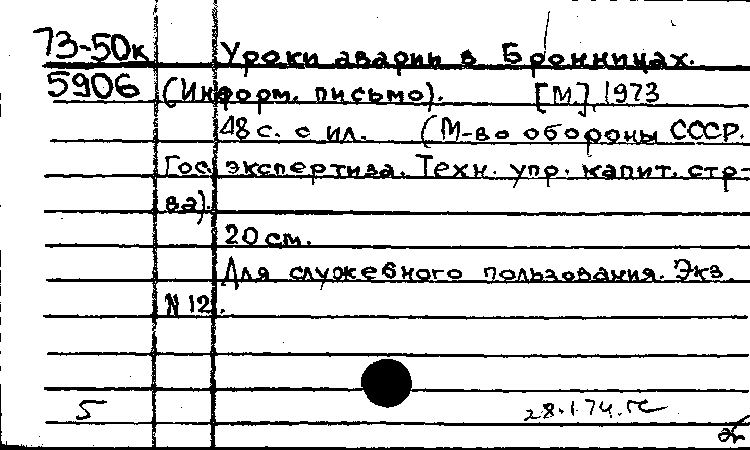 73-50к Уроки аварии в Бронницах.
5906 (Информ. письмо). [М.], 1973
48 с. с ил. (М-во обороны СССР.
Гос. экспертиза. Техн. упр. капит. стр-
ва).
20 см.
Для служебного пользования. Экз.
N 12.
5
28.1.74.